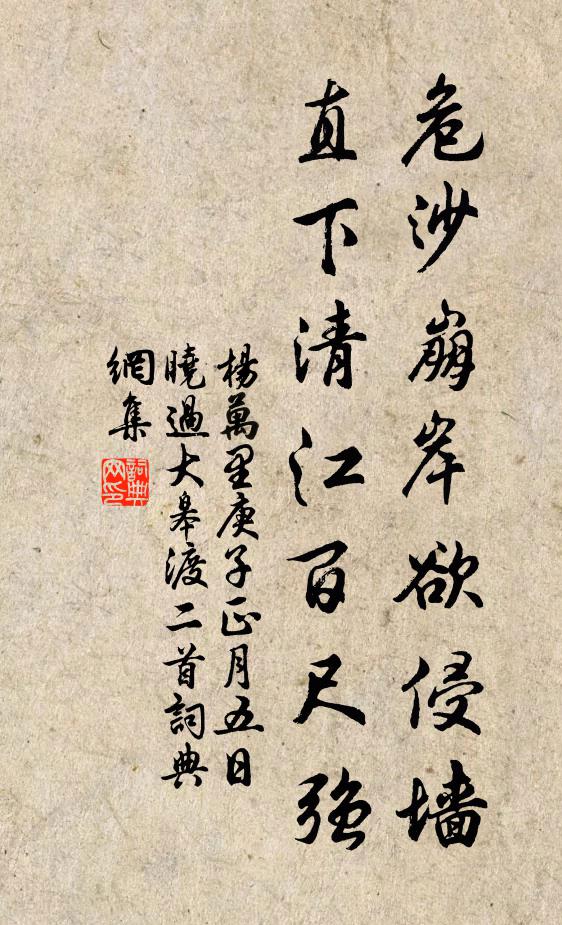 危沙崩岸欲侵墙
直下清江百尺強
楊萬里庚子正月五日
曉過大皋渡二首詞典
網集
詞典
网印